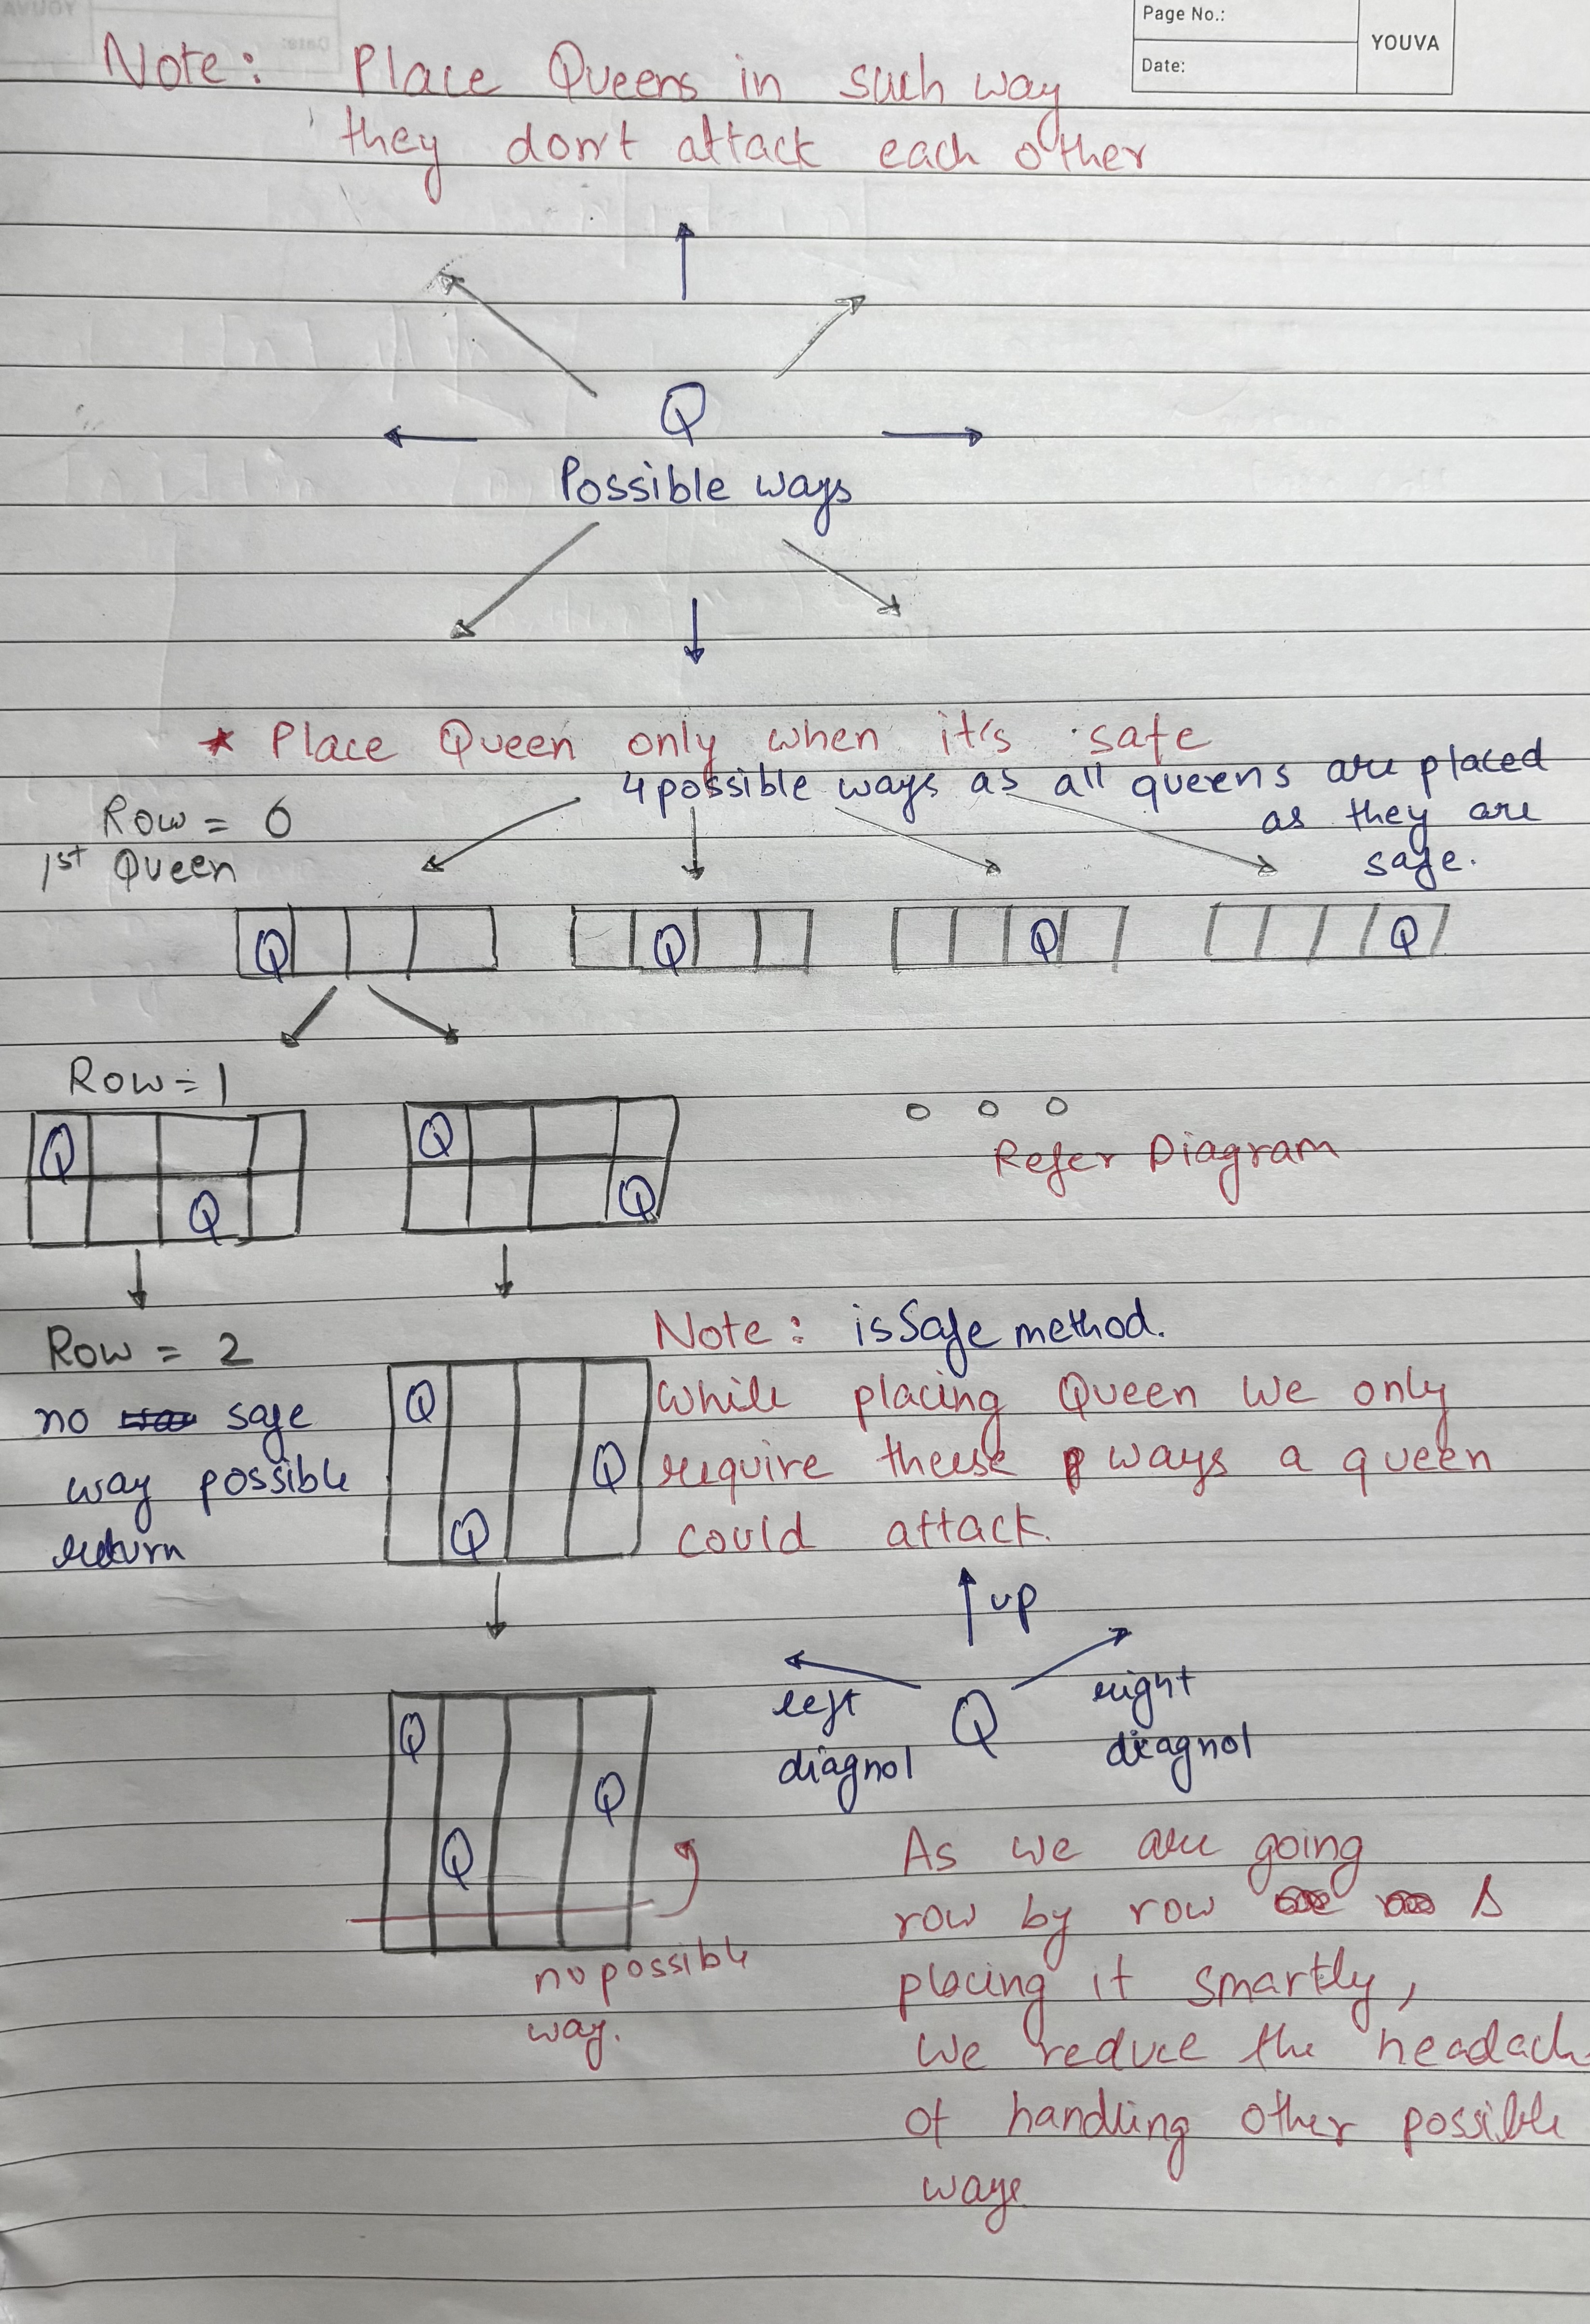 Page No.:
Date:
YOUVA
Note: Place Queens in such way
they don't attack each other
Q
Possible ways
* Place Queen only when it's safe
4 possible ways as all queens are placed
as they are
safe.
Row = 0
1st Queen
Q
Q
Q
Q
Row = 1
Q
Q
Q
Q
o o o
Refer Diagram
Row = 2
no safe
way possible
return
Q
Q
Q
Note: isSafe method.
While placing Queen we only
require these ways a queen
could attack.
up
left
diagnol
Q
right
diagnol
Q
Q
Q
no possible
way.
As we are going
row by row
placing it smartly,
we reduce the headach
of handling other possible
ways